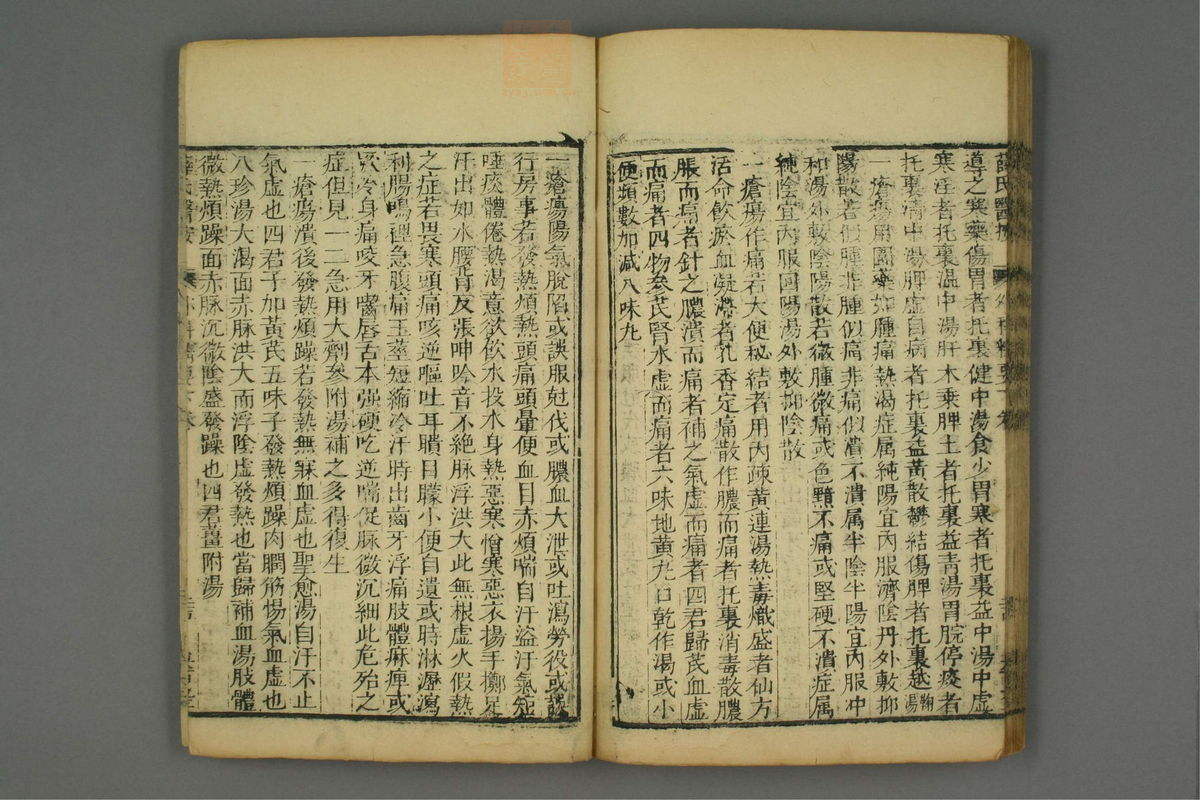 導之寒藥傷胃者托裏健中湯食少胃寒者托裏益中湯中虛
寒淫者托裏溫中湯肝木乗脾土者托裏益青湯胃脘停痰者
托裏清中湯脾虛自病者托裏益黃散鬱結傷脾者托裏越鞠湯
一瘡瘍用藥如腫痛熱渴症属純陽宜內服濟陰丹外敷抑
陽散若似腫非腫似痛非痛似潰不潰属半陰半陽宜內服冲
和湯外敷陰陽散若微腫微痛或色黯不痛或堅硬不潰症属
純陰宜內服回陽湯外敷抑陰散
一瘡瘍作痛若大便秘結者用內疎黃連湯熱毒熾盛者仙方
活命飲瘀血凝滯者乳香定痛散作膿而痛者托裏消毒散膿
脹而痛者針之膿潰而痛者補之氣虛而痛者四君歸芪血虛
而痛者四物參芪腎水虛而痛者六味地黃丸口乾作渴或小
便頻數加減八味丸
一瘡瘍陽氣脫陷或誤服尅伐或膿血大泄或吐瀉勞役或誤
行房事若發熱煩熱頭痛頭暈便血目赤煩喘自汗盜汗氣短
唾痰體倦熱渴意欲飲水投水身熱惡寒憎寒惡衣揚手擲足
汗出如水腰背反張呻吟音不絕脉浮洪大此無根虛火假熱
之症若畏寒頭痛咳逆嘔吐耳聵目矇小便自遺或時淋瀝瀉
利腸鳴裡急腹痛玉莖短縮冷汗時出齒牙浮痛肢體麻痺或
厥冷身痛咬牙嚙唇舌本强硬吃逆喘促脉微沉細此危殆之
症但見一二急用大劑參附湯補之多得復生
一瘡瘍潰後發熱煩躁若發熱無寐血虛也聖愈湯自汗不止
氣虛也四君子加黃芪五味子發熱煩躁肉瞤筋惕氣血虛也
八珍湯大渴面赤脉洪大而浮陰虛發熱也當歸補血湯肢體
微熱煩躁面赤脉沉微陰盛發躁也四君薑附湯